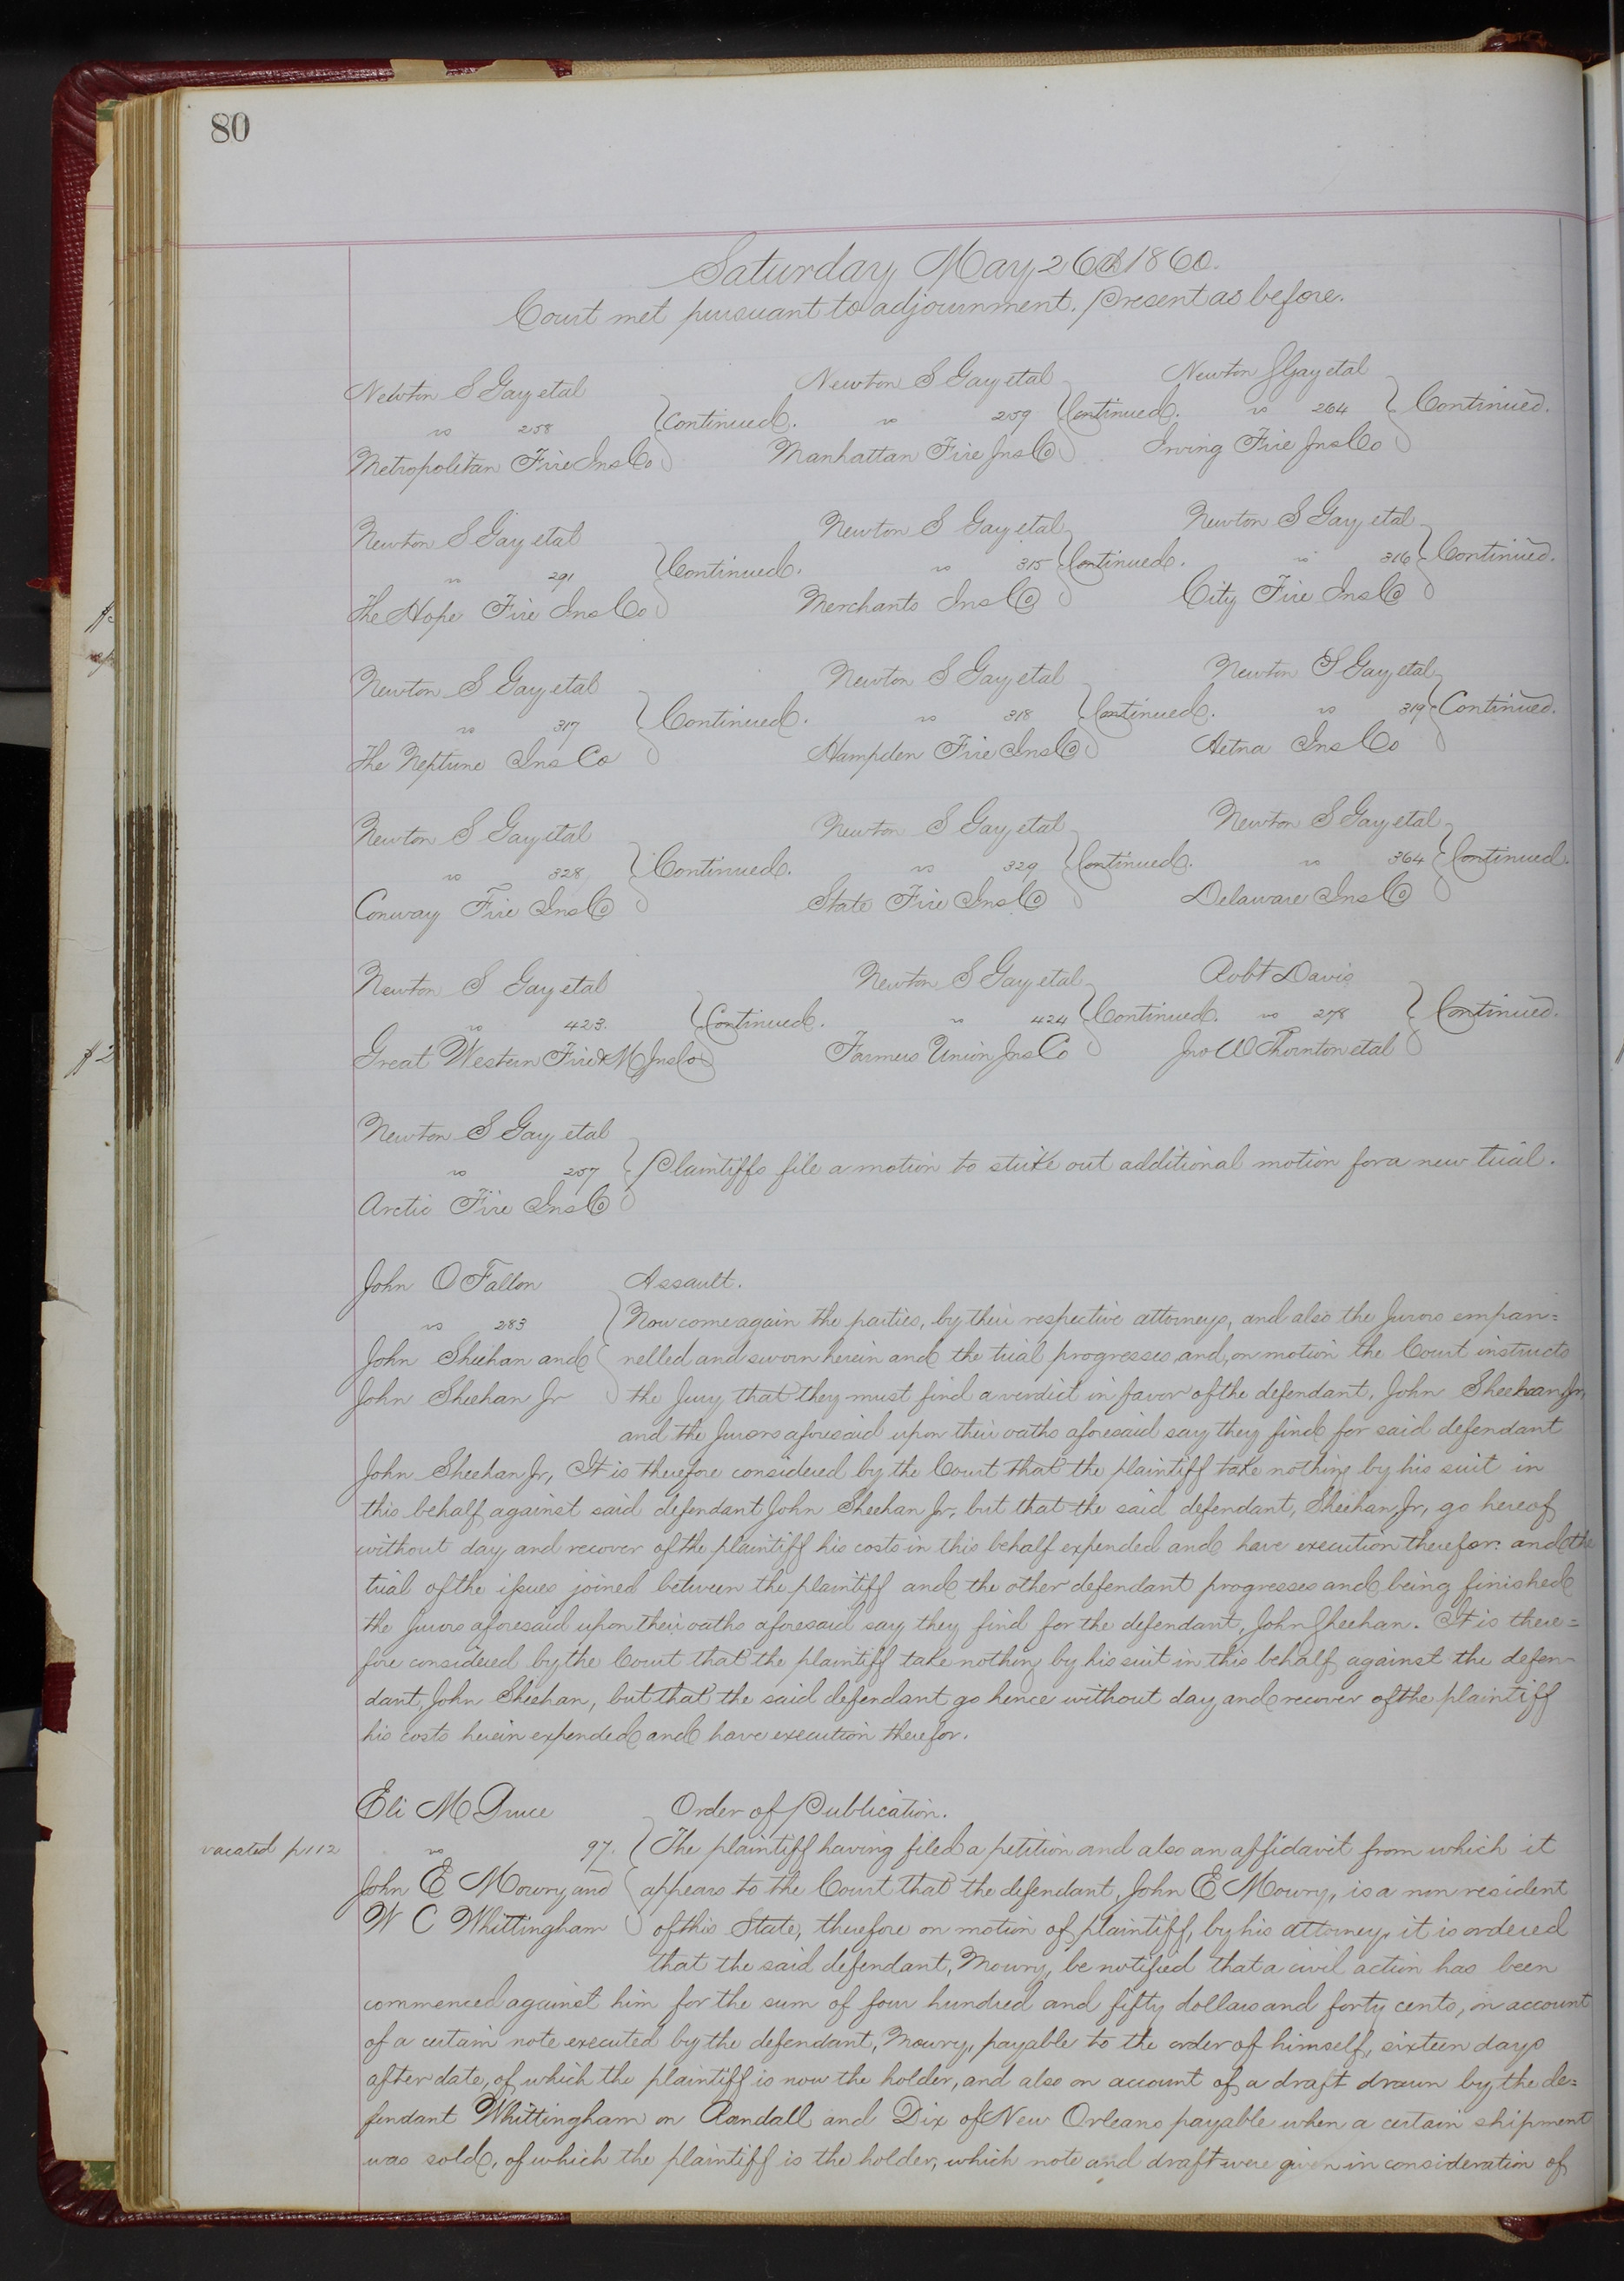 80
Saturday May 26th 1860.
Court met pursuant to adjournment. Present as before.
Newton S Gay etal
vs 258 Continued.
Metropolitan Fire Ins Co
Newton S Gay etal
vs 259 Continued.
Manhattan Fire Ins Co
Newton S Gay etal
vs 264 Continued.
Irving Fire Ins Co
Newton S Gay etal
vs 291 Continued.
The Hope Fire Ins Co
Newton S Gay etal
vs 315 Continued.
Merchants Ins Co
Newton S Gay etal
vs 316 Continued.
City Fire Ins Co
Newton S Gay etal
vs 317 Continued.
The Neptune Ins Co
Newton S Gay etal
vs 318 Continued.
Hampden Fire Ins Co
Newton S Gay etal
vs 319 Continued.
Aetna Ins Co
Newton S Gay etal
vs 328 Continued.
Conway Fire Ins Co
Newton S Gay etal
vs 329 Continued.
State Fire Ins Co
Newton S Gay etal
vs 364 Continued.
Delaware Ins Co
Newton S Gay etal
vs 423. Continued.
Great Western Fire & M Ins Co
Newton S Gay etal
vs 424 Continued.
Farmers Union Ins Co
Robt Davis
vs 278 Continued.
Jno W Thornton etal
Newton S Gay etal
vs 257 Plaintiffs file a motion to strike out additional motion for a new trial.
Arctic Fire Ins Co
John O Fallon Assault.
vs 283 Now come again the parties, by their respective attorneys, and also the Jurors empan=
John Sheehan and nelled and sworn herein and the trial progresses, and, on motion the Court instructs
John Sheehan Jr the Jury that they must find a verdict in favor of the defendant, John Sheehan Jr,
and the Jurors aforesaid upon their oaths aforesaid say they find for said defendant
John Sheehan Jr, It is therefore considered by the Court that the plaintiff take nothing by his suit in
this behalf against said defendant John Sheehan Jr, but that the said defendant, Sheehan, Jr, go hereof
without day and recover of the plaintiff his costs in this behalf expended and have execution therefor. and the
trial of the issues joined between the plaintiff and the other defendant progresses and being finished
the Jurors aforesaid upon their oaths aforesaid say they find for the defendant, John Sheehan. It is there=
fore considered by the Court that the plaintiff take nothing by his suit in this behalf against the defen-
dant, John Sheehan, but that the said defendant go hence without day and recover of the plaintiff
his costs herein expended and have execution therefor.
Eli M Bruce Order of Publication.
vacated p 112 vs 97. The plaintiff having filed a petition and also an affidavit from which it
John E Mowry and appears to the Court that the defendant, John E Mowry, is a non resident
W C Whittingham of this State, therefore on motion of plaintiff, by his attorney, it is ordered
that the said defendant, Mowry, be notified that a civil action has been
commenced against him for the sum of four hundred and fifty dollars and forty cents, on account
of a certain note executed by the defendant, Mowry, payable to the order of himself, sixteen days
after date, of which the plaintiff is now the holder, and also on account of a draft drawn by the de=
fendant Whittingham on Randall and Dix of New Orleans payable when a certain shipment
was sold, of which the plaintiff is the holder, which note and draft were given in consideration of